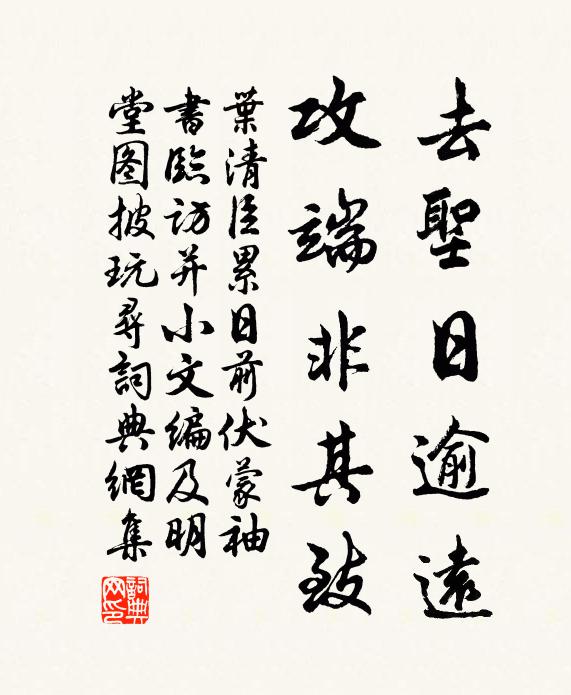 去聖日逾遠
攻端非其致
葉清臣累日前伏蒙袖
書臨訪并小文編及明
堂图披玩尋詞典網集
詞典网印